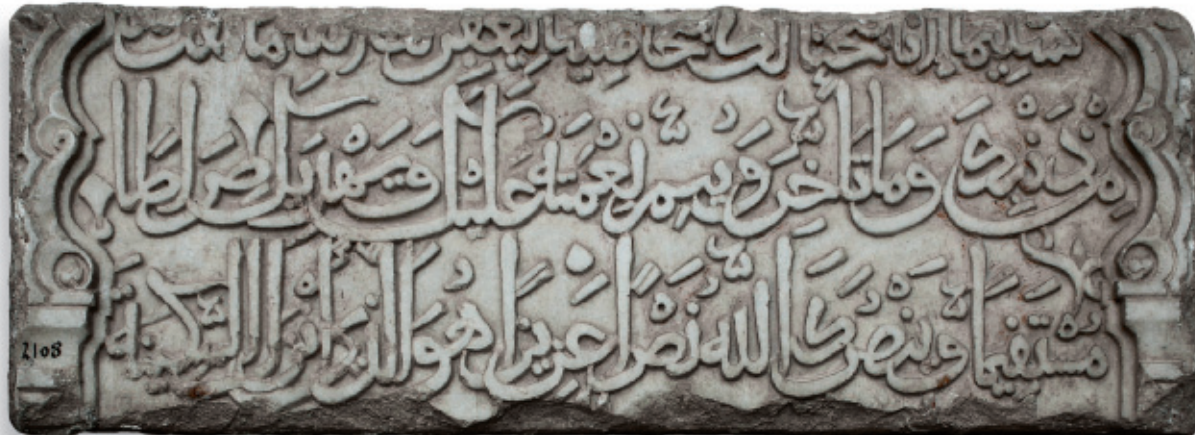 تسليما إنا فتحنا لك فتحا مبينا ليغفر لك الله ما تقدم
من ذنبك وما تأخر ويتم نعمته عليك ويهديك صراطا
مستقيما وينصرك الله نصرا عزيزا هو الذي أنزل السكينة
2108